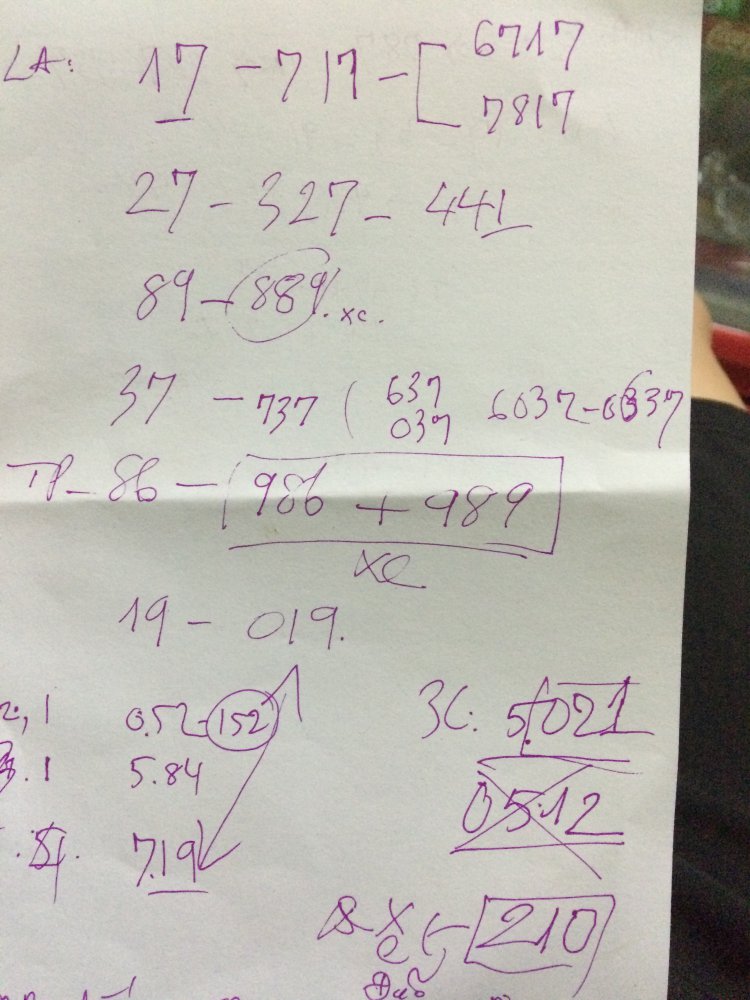 LA: 17 - 717 - [ 6717
7817
27 - 327 - 441
89 - 889. xc.
37 - 737 ( 637 6037 - 0637
037
TP - 86 - 986 + 989
xc
19 - 019.
2,1 0.52 - 152 3C. 5.021
3.1 5.84
05.12
7.19
210
Đảo